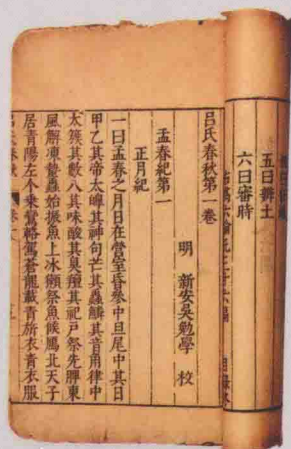 五曰辨土
六曰審時
呂氏春秋第一卷
明 新安吳勉學 校
孟春紀第一
正月紀
一曰孟春之月日在營室昏參中旦尾中其日
甲乙其帝太皞其神句芒其蟲鱗其音角律中
太簇其數八其味酸其臭羶其祀戶祭先脾東
風解凍蟄蟲始振魚上冰獺祭魚候鴈北天子
居青陽左个乘鸞輅駕蒼龍載青旂衣青衣服